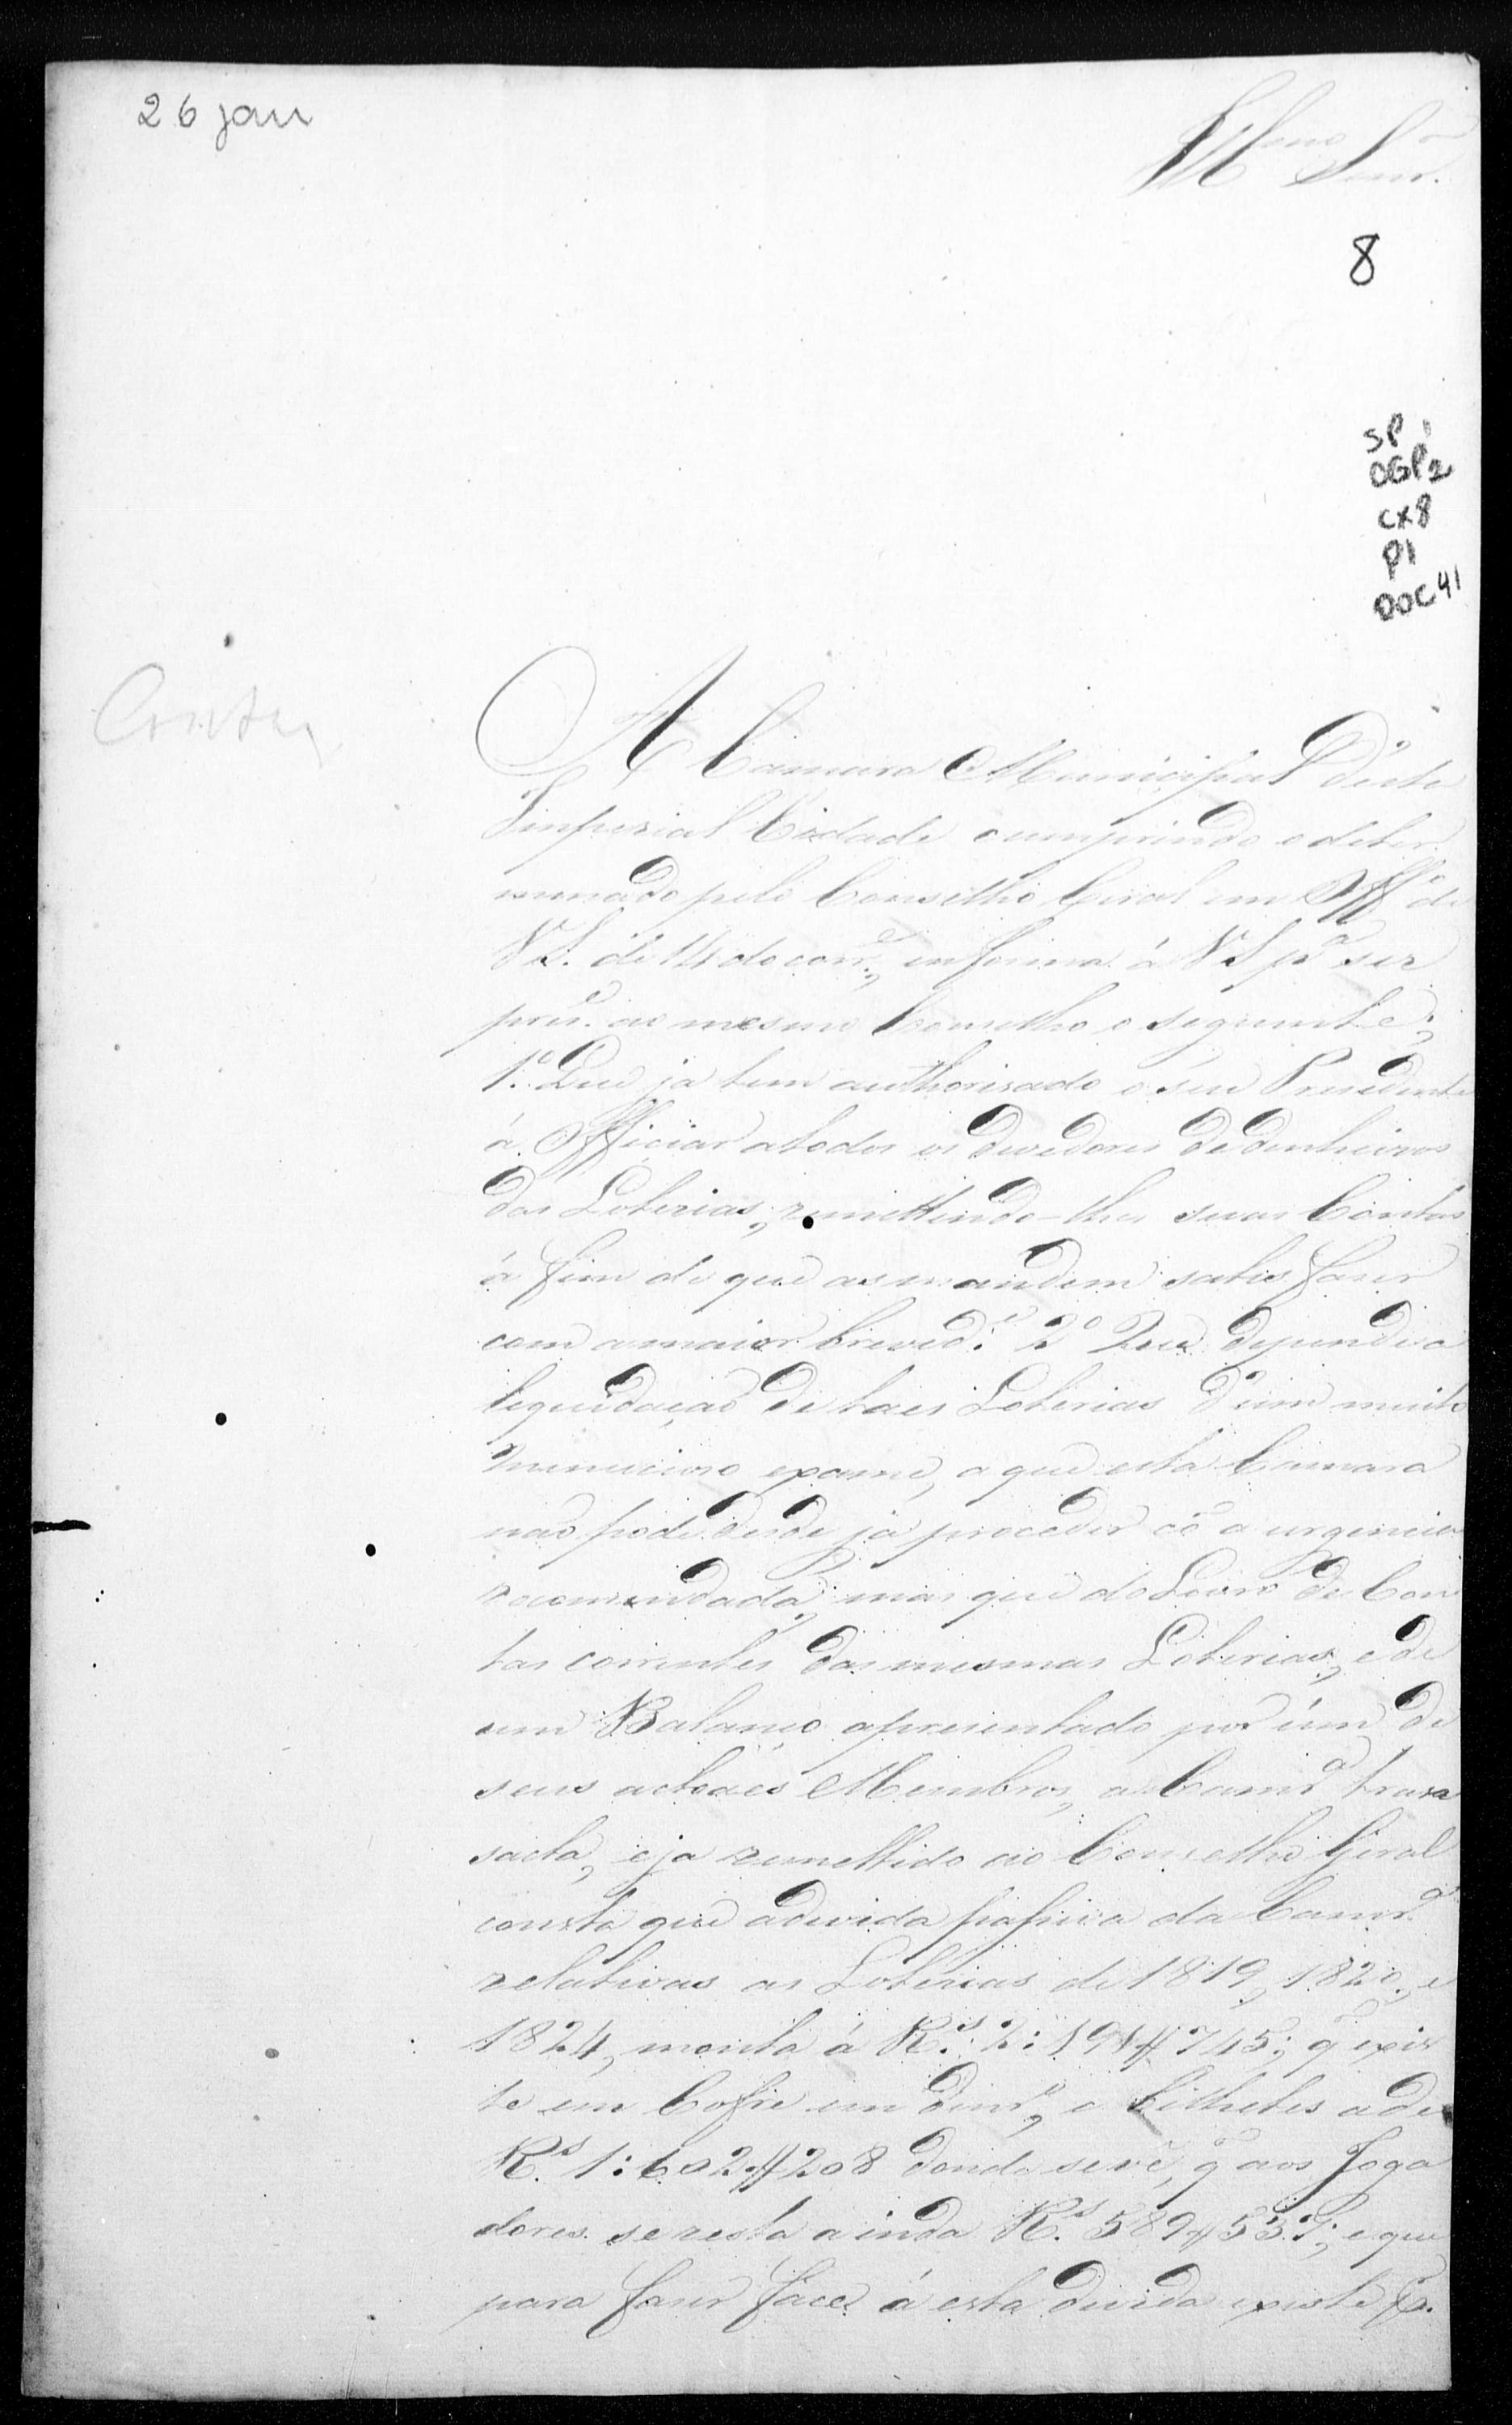 26 jan
Illmo Senr.
8
SP
OGP2
CX8
P1
DOC 41
A Camara Municipal d'esta
Imperial Cidade cumprindo o deter
minado pelo Conselho Geral em Offo de
V S. de 14 do corre., informa á V S pa ser
pree. ao mesmo Conselho o seguinte;
1.º Que ja tem authorisado o seu Presidente
á Officiar a todos os devedores de dinheiros
das Loterias, remettindo-lhes suas Contas
á fim de que as mandem satisfazer
com a maior brevide. 2º Que dependia
liquidação de taes Loterias d'um muito
minucioso exame, a que esta Camara
não pode desde já proceder cõ a urgencia
recomendada, mas que do Livro de Con
tas correntes das mesmas Loterias, e de
um Balanço apresentado por úm de
seus actoaes Membros, a Camra tran
sacta, e ja remettido ao Conselho Geral
consta que a divida passiva da Camra
relativas as Loterias de 1819, 1820, e
1824, monta á Rs. 2:191#745; q exis
te em Cofre em dinro, e Bilhetes a de
Rs. 1:602#208 donde se vê, q aos Joga
dores se resta ainda Rs. 589#537; e que
para fazer face á esta divida existe